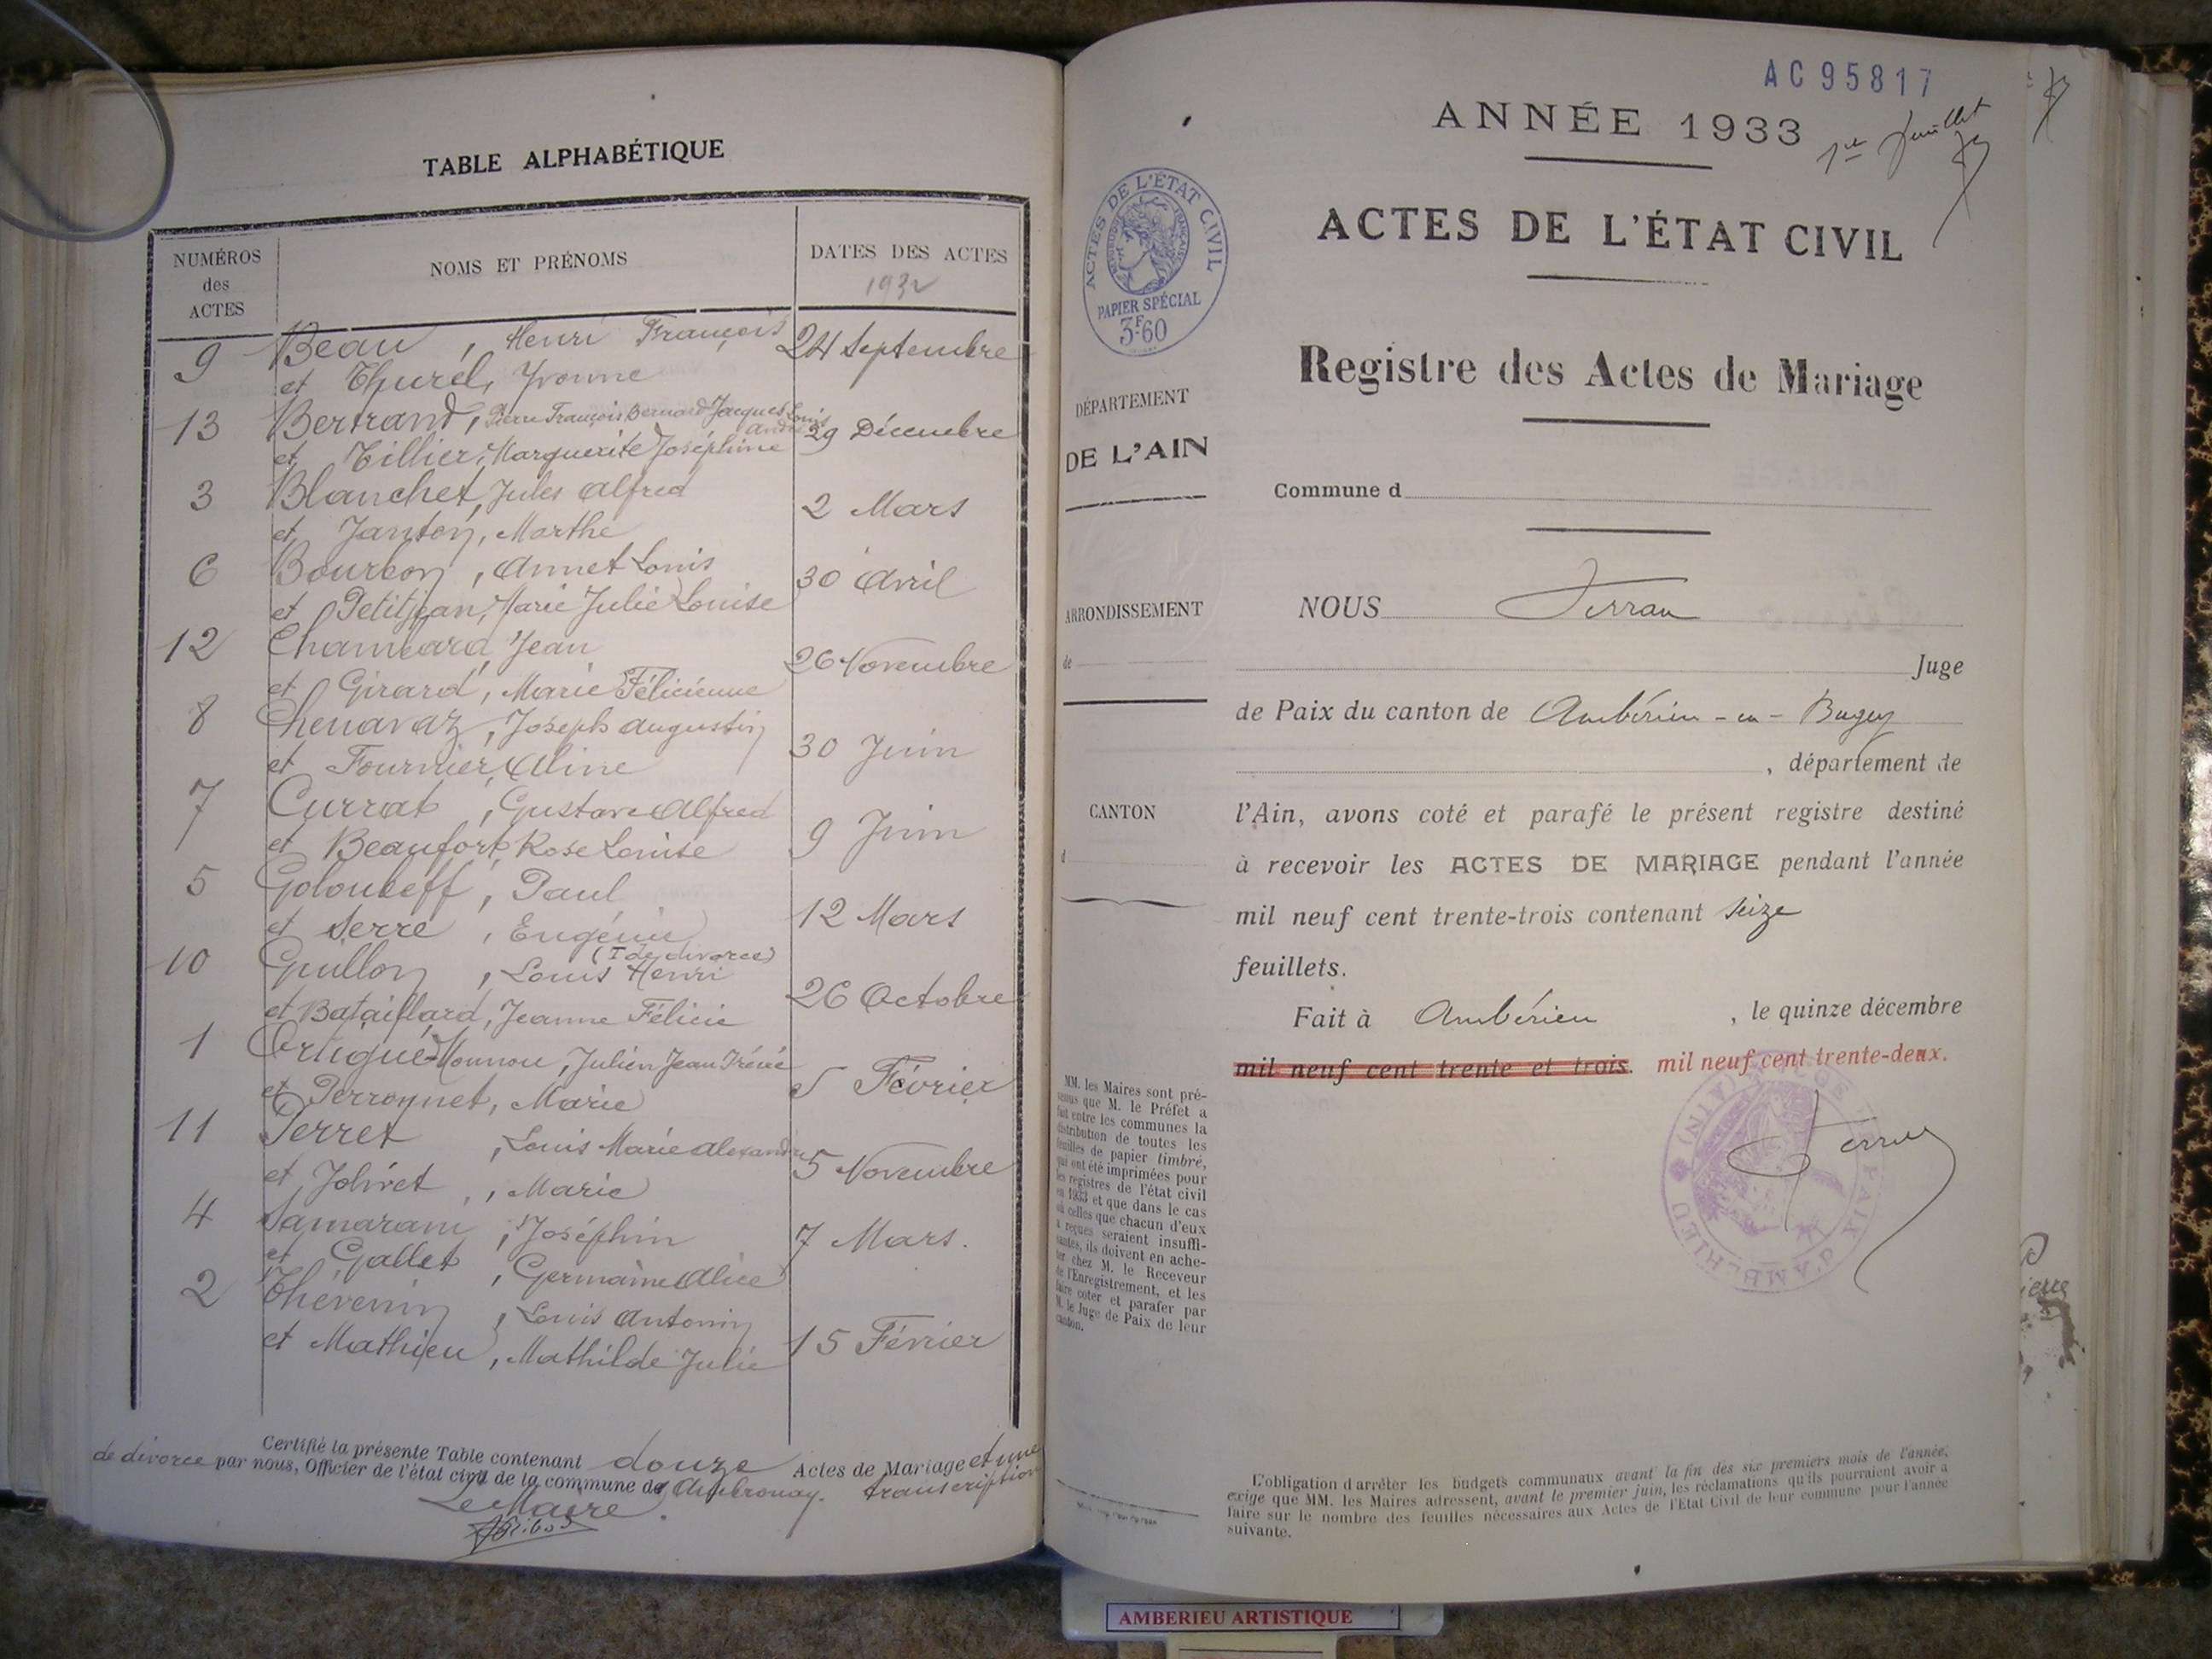 TABLE ALPHABÉTIQUE
NUMÉROS
des
ACTES
NOMS ET PRÉNOMS
DATES DES ACTES
1932
9 Beau, Henri François 24 Septembre
et Thurel, Yvonne
13 Bertrand, Pierre François Bernard Jacques Louis
André 29 Décembre
et Tillier, Marguerite Joséphine
3 Blanchet, Jules Alfred 2 Mars
et Janton, Marthe
6 Bourbon, Annet Louis 30 Avril
et Petitjean, Marie Julie Louise
12 Chambard, Jean 26 Novembre
et Girard, Marie Félicienne
8 Chenavaz, Joseph Augustin 30 Juin
et Fournier, Aline
7 Currat, Gustave Alfred 9 Juin
et Beaufort, Rose Louise
5 Goloubeff, Paul 12 Mars
et Serre, Eugénie
(T de divorce)
10 Guillon, Louis Henri 26 Octobre
et Bataillard, Jeanne Félicie
1 Julien Jean Irénée 5 Février
et Perronnet, Marie
11 Perret, Louis Marie Alexandre 5 Novembre
et Jolivet, Marie
4 Samarani, Joséphin 7 Mars.
et Gallet, Germaine Alice
2 Thévenin, Louis Antonin 15 Février
et Mathieu, Mathilde Julie
Certifié la présente Table contenant douze Actes de Mariage et une transcription
de divorce par nous, Officier de l'état civil de la commune de Ambronay.
Le Maire.
AC 95817
ANNÉE 1933
1er feuillet
ACTES DE L'ÉTAT CIVIL
RÉPUBLIQUE FRANÇAISE
PAPIER SPÉCIAL
3F.60
ACTES DE L'ÉTAT CIVIL
Registre des Actes de Mariage
DÉPARTEMENT
DE L'AIN
Commune d
ARRONDISSEMENT
de
CANTON
d
NOUS Ferran
Juge
de Paix du canton de Ambérieu-en-Bugey
, département de
l'Ain, avons coté et parafé le présent registre destiné
à recevoir les ACTES DE MARIAGE pendant l'année
mil neuf cent trente-trois contenant seize
feuillets.
Fait à Ambérieu, le quinze décembre
mil neuf cent trente et trois. mil neuf cent trente-deux.
Ferran
MM. les Maires sont pré-
venus que M. le Préfet a
fait entre les communes la
distribution de toutes les
feuilles de papier timbré,
qui ont été imprimées pour
les registres de l'état civil
en 1933 et que dans le cas
où celles que chacun d'eux
a reçues seraient insuffi-
santes, ils doivent en ache-
ter chez M. le Receveur
de l'Enregistrement, et les
faire coter et parafer par
M. le Juge de Paix de leur
canton.
L'obligation d'arrêter les budgets communaux avant la fin des six premiers mois de l'année,
exige que MM. les Maires adressent, avant le premier juin, les réclamations qu'ils pourraient avoir à
faire sur le nombre des feuilles nécessaires aux Actes de l'Etat Civil de leur commune pour l'année
suivante.
AMBERIEU ARTISTIQUE